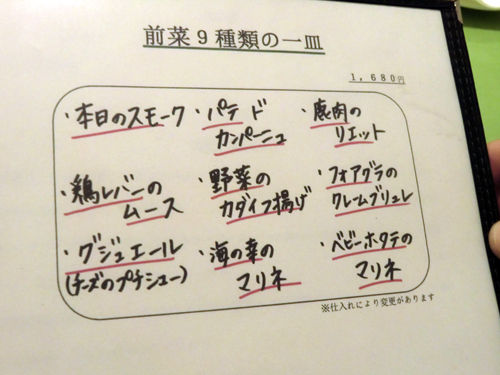 前菜９種類の一皿
1,680円
・本日のスモーク
・パテ ド
カンパーニュ
・鹿肉の
リエット
・鶏レバーの
ムース
・野菜の
カダイフ揚げ
・フォアグラの
クレームブリュレ
・グジュエール
(チーズのプチシュー)
・海の幸の
マリネ
・ベビーホタテの
マリネ
※仕入れにより変更があります